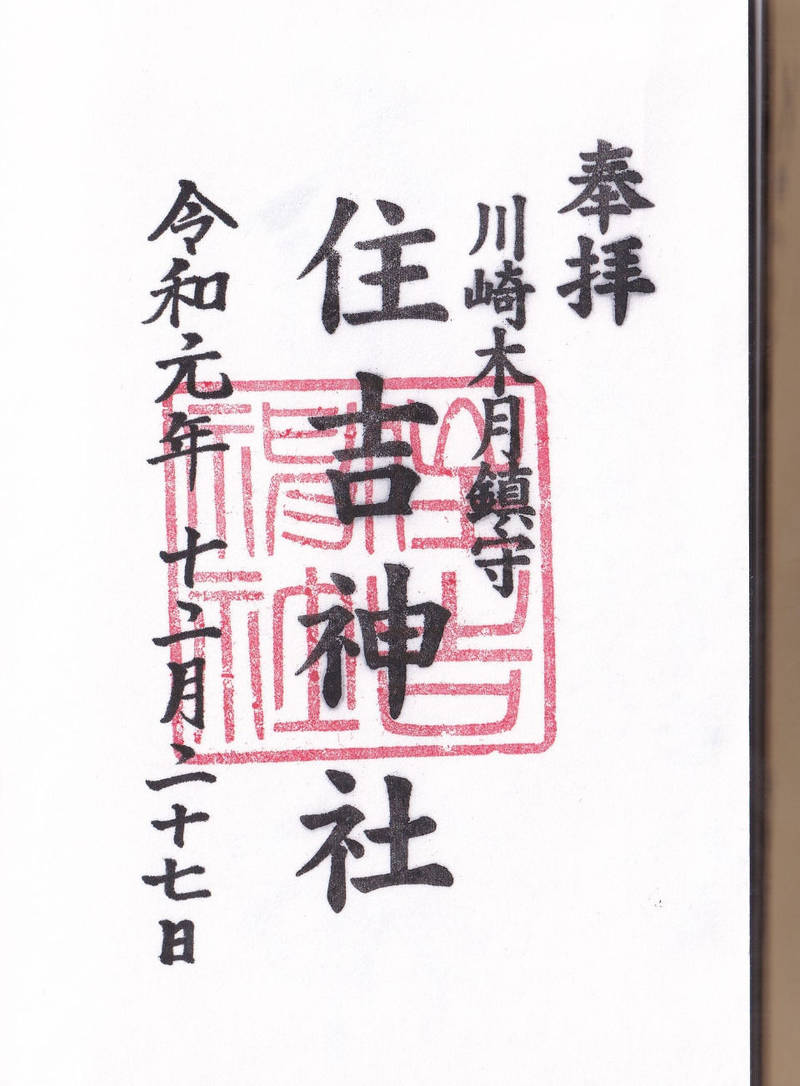 奉拝
川崎木月鎮守
住吉神社
令和元年 十二月二十七日
住吉
神社